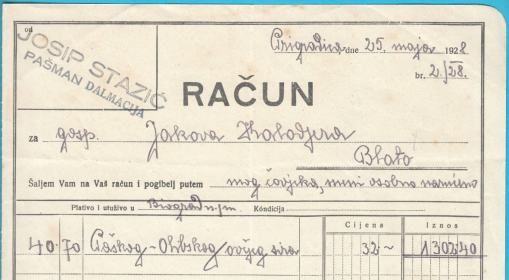 od
JOSIP STAZIĆ
PAŠMAN DALMACIJA
Prigradica, dne 25. maja 1928
br. 2./28.
RAČUN
za gosp. Jakova
Blato
Šaljem Vam na Vaš račun i pogibelj putem mog čovjeka, meni osobno
Plativo i utuživo u Biograd n/m. Kondicija
Cijena Iznos
40·70 ovčjeg sira 32 ~ 1302·40